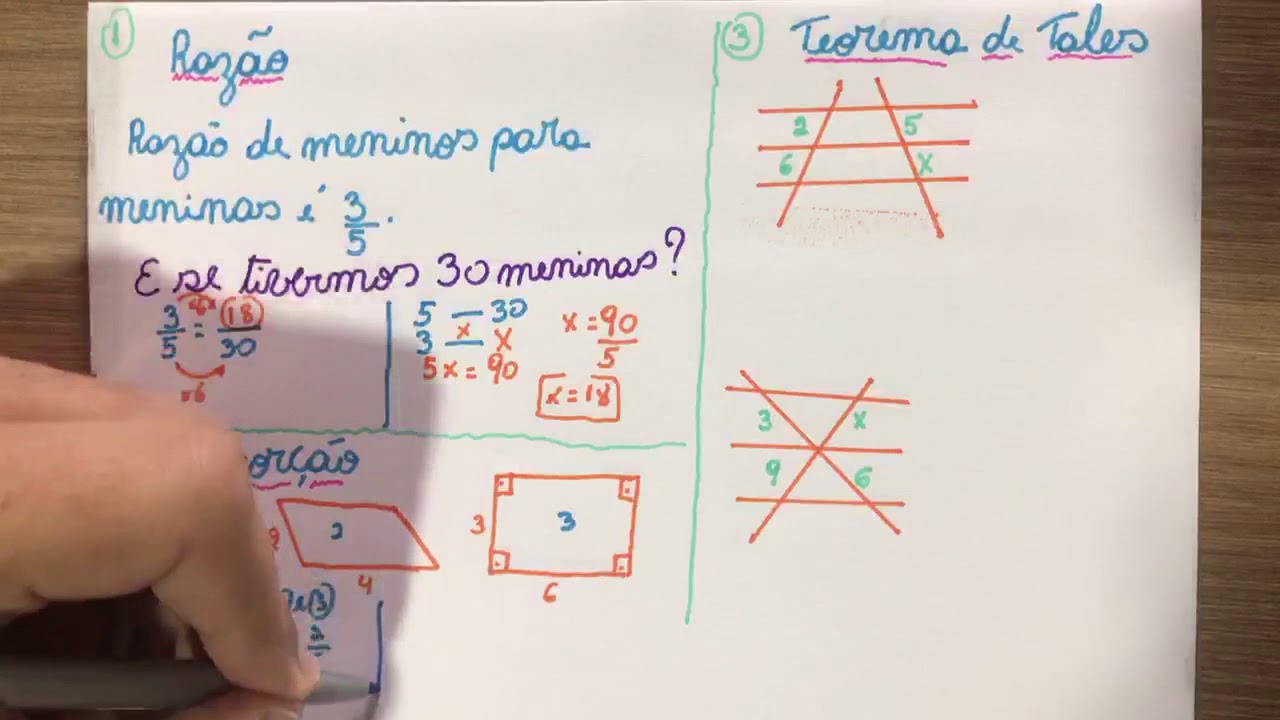 1
Razão
Razão de meninos para
meninas é 3/5.
E se tivermos 30 meninas?
3/5 = 18/30
×6
5 — 30
3 — x
x
5x = 90
x = 90/5
x = 18
orção
2
2
4
3
3
6
e 3
3 Teorema de Tales
2 5
6 x
3 x
9 6